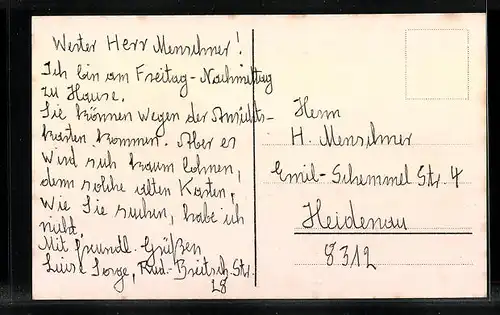 Werter Herr Menschner!
Ich bin am Freitag-Nachmittag
zu Hause.
Sie können wegen der Ansichts-
karten kommen. Aber es
wird sich kaum lohnen,
denn solche alten Karten,
wie Sie suchen, habe ich
nicht.
Mit freundl. Grüßen
Luise Sorge, Rud.-Breitsch.-Str.
28
Herrn
H. Menschner
Emil-Schemmel Str. 4
Heidenau
8312